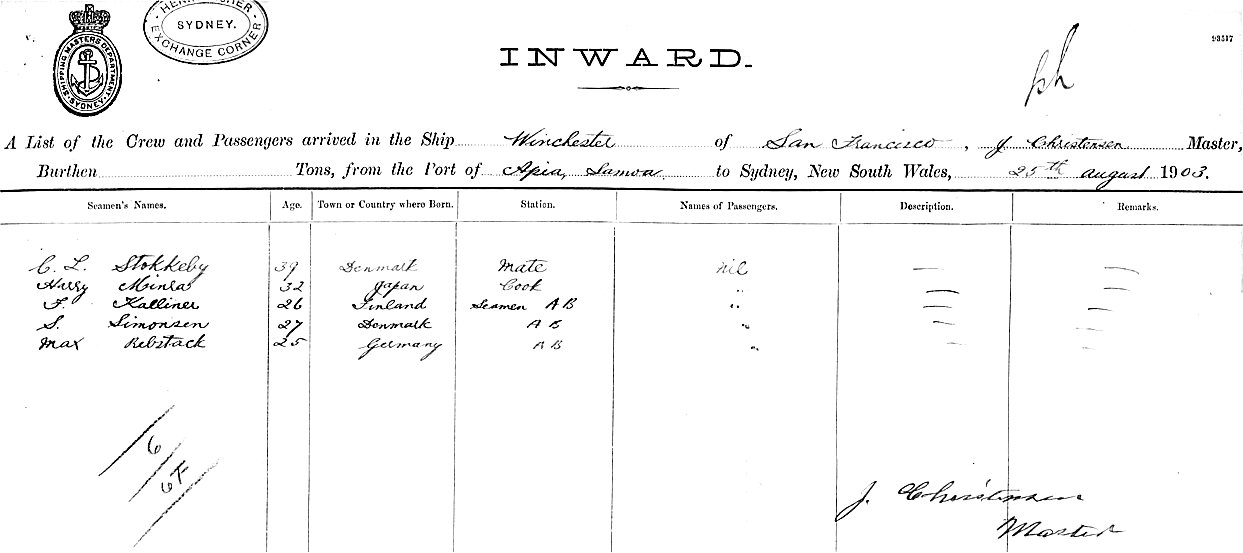 SHIPPING MASTERS DEPARTMENT · SYDNEY ·
SYDNEY.
EXCHANGE CORNER
INWARD.
93517
A List of the Crew and Passengers arrived in the Ship Winchester of San Francisco, J Christensen Master,
Burthen Tons, from the Port of Apia, Samoa to Sydney, New South Wales, 25th august 1903.
Seamen's Names. Age. Town or Country where Born. Station. Names of Passengers. Description. Remarks.
C. L. Stokkeby 39 Denmark Mate nil — —
Harry Minra 32 Japan Cook " — —
F. Kalliner 26 Finland Seamen A B " — —
S. Simonsen 27 Denmark A B " — —
Max Rebstack 25 Germany A B " — —
J. Christensen
Master